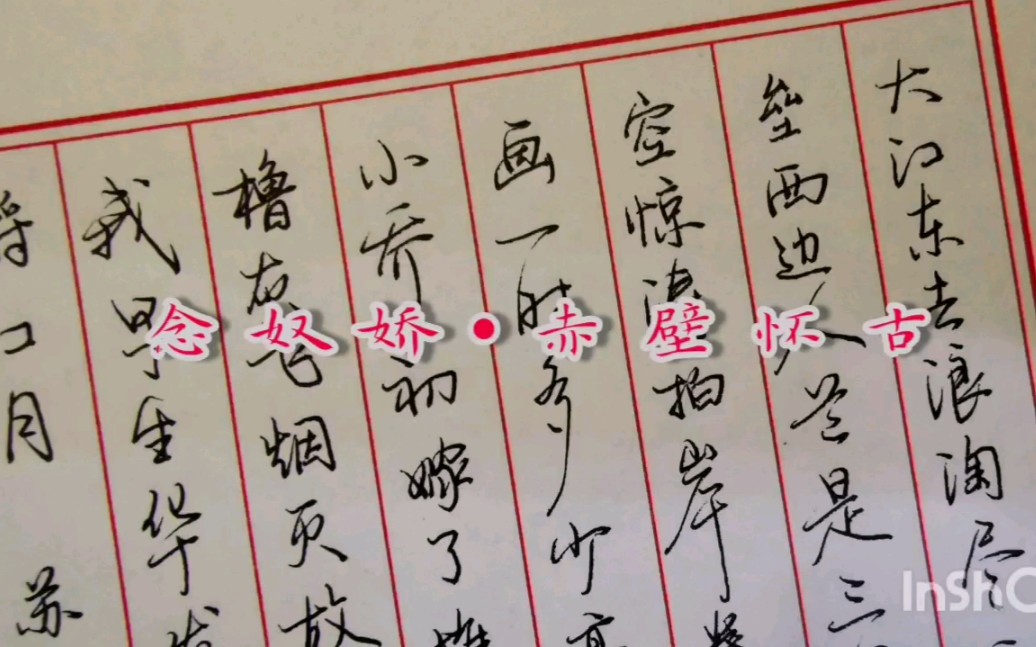 念奴娇·赤壁怀古
大江东去浪淘尽
垒西边人道是三
空惊涛拍岸卷
画一时多少豪
小乔初嫁了雄
橹灰飞烟灭故
我早生华发
江月 苏
InSh